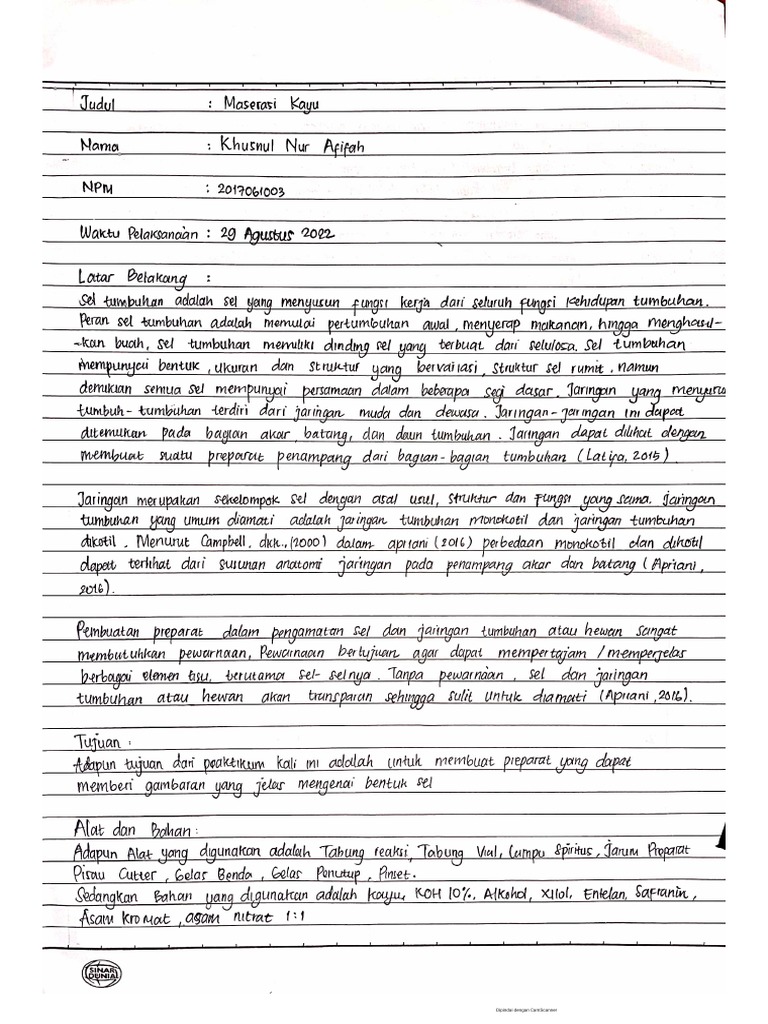 Judul : Maserasi Kayu
Nama : Khusnul Nur Afifah
NPM : 2017061003
Waktu Pelaksanaan : 29 Agustus 2022
Latar Belakang :
Sel tumbuhan adalah sel yang menyusun fungsi kerja dari seluruh fungsi kehidupan tumbuhan.
Peran sel tumbuhan adalah memulai pertumbuhan awal, menyerap makanan, hingga menghasil-
-kan buah, sel tumbuhan memiliki dinding sel yang terbuat dari selulosa. Sel tumbuhan
mempunyai bentuk, ukuran dan struktur yang bervariasi, struktur sel rumit, namun
demikian semua sel mempunyai persamaan dalam beberapa segi dasar. Jaringan yang menyusu
tumbuh-tumbuhan terdiri dari jaringan muda dan dewasa. Jaringan-jaringan ini dapat
ditemukan pada bagian akar, batang, dan daun tumbuhan. Jaringan dapat dilihat dengan
membuat suatu preparat penampang dari bagian-bagian tumbuhan (Latifa, 2015).
Jaringan merupakan sekelompok sel dengan asal usul, struktur dan fungsi yang sama. jaringan
tumbuhan yang umum diamati adalah jaringan tumbuhan monokotil dan jaringan tumbuhan
dikotil. Menurut Campbell, dkk., (2000) dalam apriani (2016) perbedaan monokotil dan dikotil
dapat terlihat dari susunan anatomi jaringan pada penampang akar dan batang (Apriani,
2016).
Pembuatan preparat dalam pengamatan sel dan jaringan tumbuhan atau hewan sangat
membutuhkan pewarnaan, Pewarnaan bertujuan agar dapat mempertajam / memperjelas
berbagai elemen tisu, terutama sel-selnya. Tanpa pewarnaan, sel dan jaringan
tumbuhan atau hewan akan transparan sehingga sulit untuk diamati (Apriani, 2016).
Tujuan :
Adapun tujuan dari praktikum kali ini adalah untuk membuat preparat yang dapat
memberi gambaran yang jelas mengenai bentuk sel
Alat dan Bahan :
Adapun Alat yang digunakan adalah Tabung reaksi, Tabung Vial, Lampu Spiritus, Jarum Preparat
Pisau Cutter, Gelas Benda, Gelas Penutup, Pinset.
Sedangkan Bahan yang digunakan adalah kayu, KOH 10%, Alkohol, Xilol, Entelan, Safranin,
Asam kromat, asam nitrat 1:1
SINAR
DUNIA
Dipindai dengan CamScanner